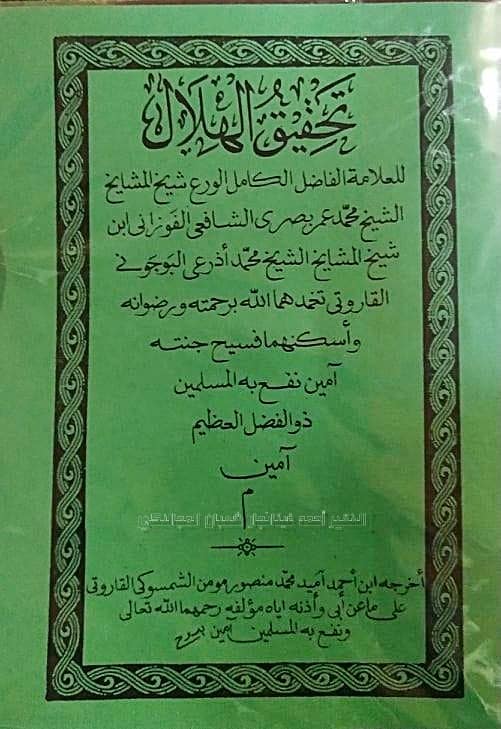 تحقيق الهلال
للعلامة الفاضل الكامل الورع شيخ المشايخ
الشيخ محمد عمر بصرى الشافعى الفوزانى ابن
شيخ المشايخ الشيخ محمد أذرعى البوجونى
القاروتى تغمدهما الله برحمته ورضوانه
وأسكنهما فسيح جنته
آمين نفع به المسلمين
ذو الفضل العظيم
آمين
م
الفقير أحمد فينانجل شعبان المجالنكي
أخرجه ابن أحمد آميد محمد منصور مومن الشمسوكى القاروتى
على ما عن أبى وأذنه اياه مؤلفه رحمهما الله تعالى
ونفع به المسلمين آمين